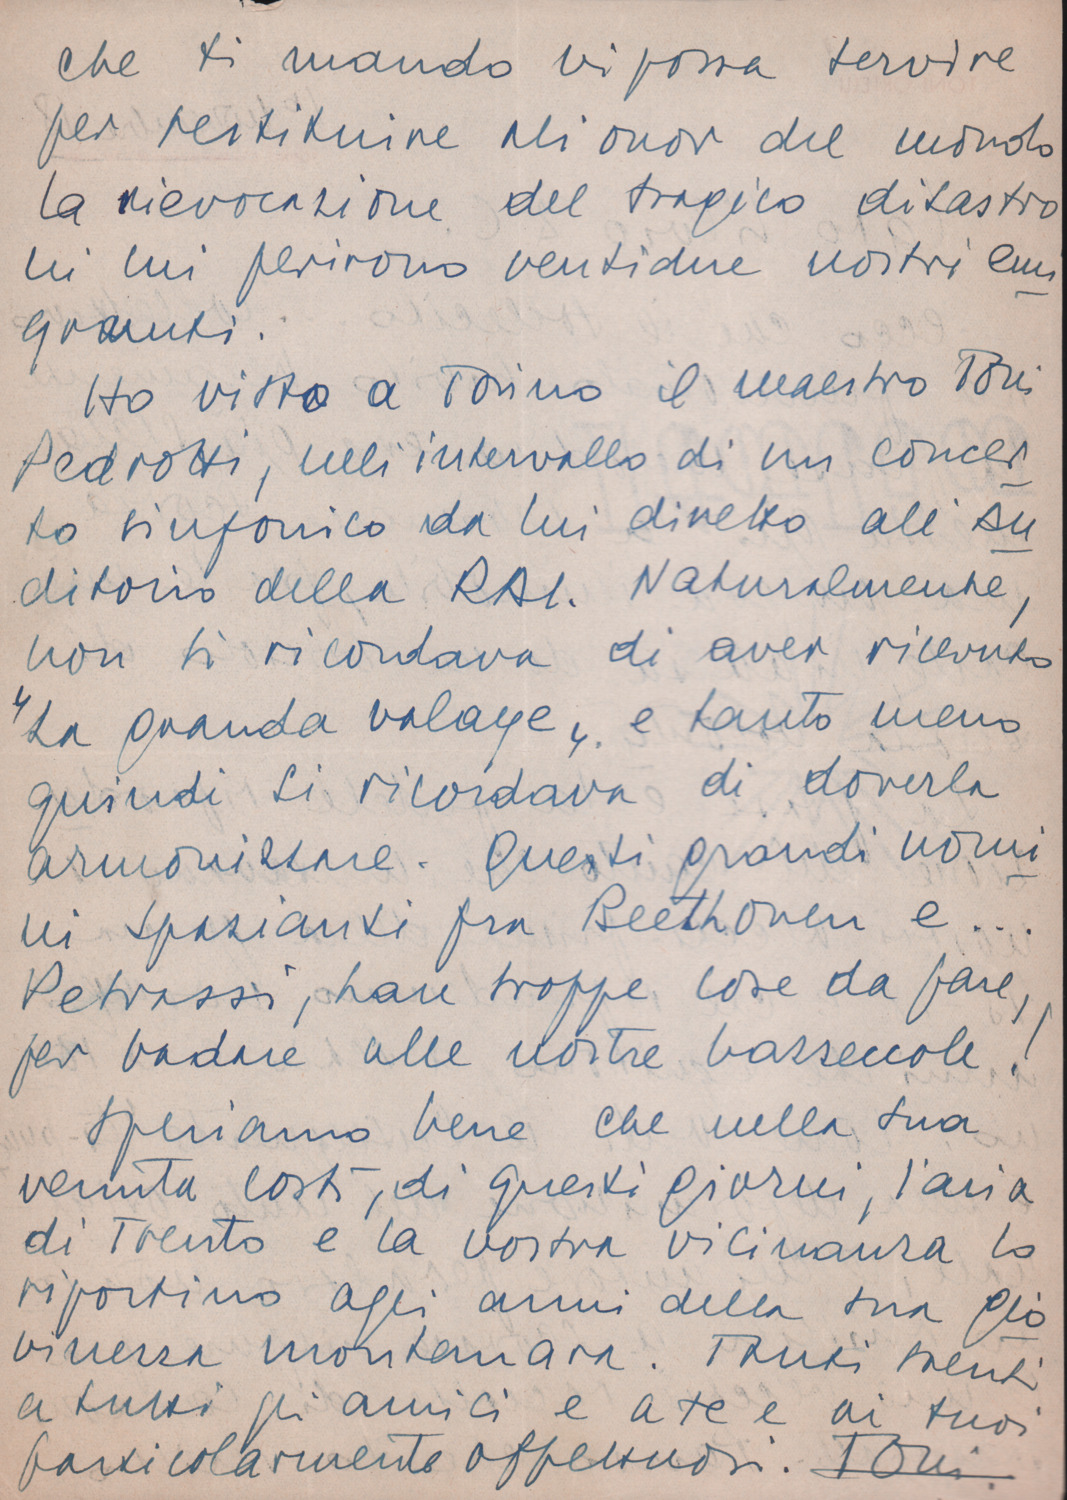 che ti mando vi possa servire
per restituire all'onor del mondo
la rievocazione del tragico disastro
in cui perirono ventidue nostri emi
granti.
Ho visto a Torino il maestro Toni
Pedrotti, nell'intervallo di un concer
to sinfonico da lui diretto all'Au
ditorio della RAI. Naturalmente,
non si ricordava di aver ricevuto
"La granda valage", e tanto meno
quindi si ricordava di doverla
armonizzare. Questi grandi uomi
ni spazianti fra Beethoven e...
Petrassi, han troppe cose da fare,
per badare alle nostre bazzecole!
Speriamo bene che nella sua
venuta costì, di questi giorni, l'aria
di Trento e la vostra vicinanza lo
riportino agli anni della sua gio
vinezza montanara. Tanti
a tutti gli amici e a te e ai tuoi
particolarmente affettuosi. Toni.